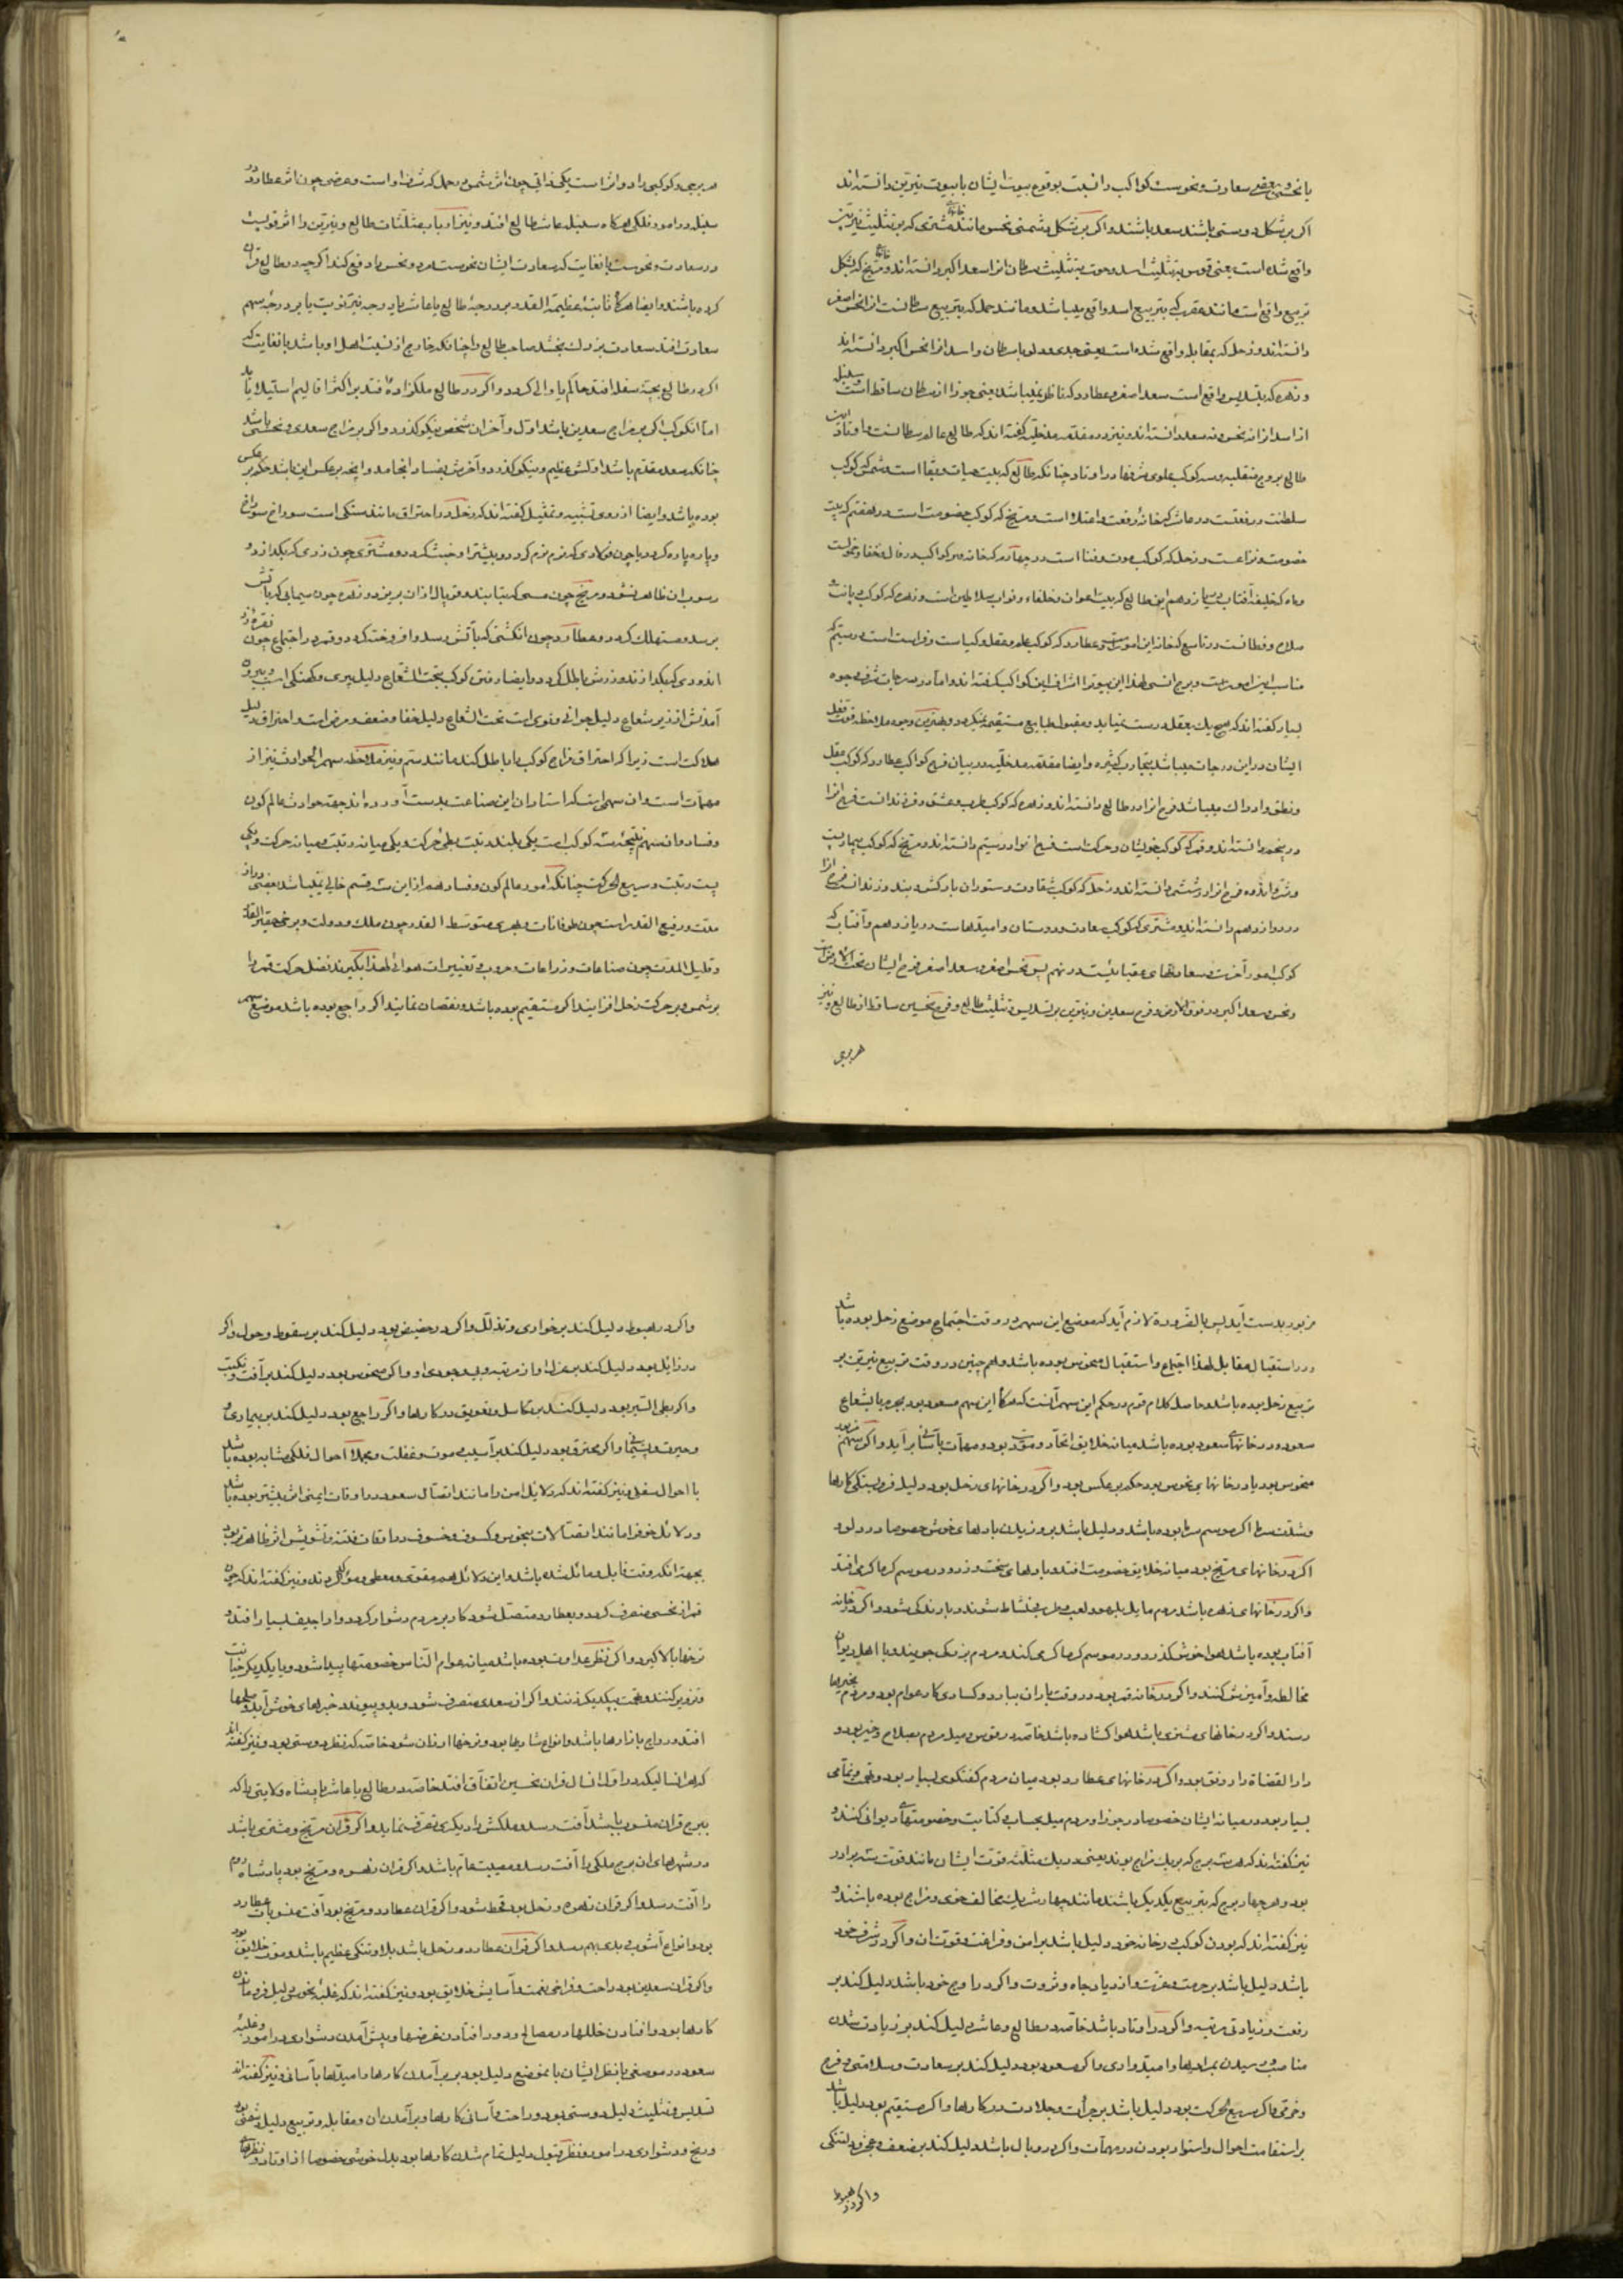 یا نحسی و بعضی سعادت و نحوست کواکب را نسبت بوقوع بیوت ایشان با بیوت نیرین دانسته‌اند
اگر بر شکل دوستی باشند سعد باشند و اگر بر شکل دشمنی نحس مانند خانهای مشتری که بر تثلیث نیرین
واقع شده است یعنی قوس بتثلیث اسد و حوت بتثلیث سرطان انرا سعد اکبر دانسته‌اند و مریخ که بشکل
تربیع واقع است مانند عقرب که بتربیع اسد واقع میباشد و مانند حمل که بتربیع سرطانست انرا نحس اصغر
دانسته‌اند و زحل که بمقابله واقع شده است یعنی جدی و دلو با سرطان و اسد انرا نحس اکبر دانسته‌اند
و زهره که بتسدیس واقع است سعد اصغر و عطارد که ناظر نمیباشد یعنی جوزا از سرطان ساقط است و سنبله
از اسد انرا نه نحس و نه سعد دانسته‌اند و نیز در مقدمه مدخلیه گفته‌اند که طالع عالم سرطانست و اوتاد این
طالع بروج منقلبه و سه کوکب علوی شرفها در اوتاد چنانکه طالع که بیت حیات و بقا است شمس که کوکب
سلطنت و رفعتست در عاشر که خانه رفعت و اعتلا است و مریخ که کوکب خصومت است در هفتم که بیت
خصومت و نزاعست و زحل که کوکب موت و فنا است در چهارم که خانه
و ماه که خلیفه آفتاب در یازدهم این طالع که بیت اعوان و خلفاء و نواب سلاطین است و زهره که کوکب دیانت
صلاح و فطانست در تاسع که خانه این امورست و عطارد که کوکب علم و عقل و کیاست و فراست است در سیم که
مناسب این امورست و برج انسی لهذا این بیوترا اشراف این کواکب گرفته‌اند و اما در درجات شرف وجوه
بسیار گفته‌اند که هیچ یک بعقل درست نمیآید و مقبول طبایع مستقیمه نمیگردد و بهترین وجوه ملاحظه قوت فعل
ایشان در این درجات میباشد بتجارب کثیره و ایضا مقدمه مدخلیه در بیان فرح کواکب عطارد که کوکب عقل
و نطق و ادراک میباشد فرح انرا در طالع دانسته‌اند و زهره که کوکب طرب و عشق و فرزندانست فرح انرا
در پنجم دانسته‌اند و قمر که کوکب خویشان و حرکت است فرح انرا در سیم دانسته‌اند و مریخ که کوکب بیماریست
در ششم دانسته‌اند و زحل که کوکب شقاوت و ستوران بارکش و بند و زندانست فرح انرا
در دوازدهم دانسته‌اند و مشتری که کوکب سعادت و دوستان و امیدهاست در یازدهم و آفتاب که
کوکب امور آخرت و سعادتهای عقبائیست در نهم پس نحس اصغر و سعد اصغر فرح ایشان تحت الارض است
و نحس و سعد اکبر در فوق الارض و فرح سعدین و نیرین بر تسدیس و تثلیث طالع و فرح نحسین ساقط از طالع و نیز
هر برجی
هر برجی و کوکبی را دو اثر است یکی ذاتی چون اثر شمس در حمل که شرف او است و عرضی چون اثر عطارد در
سنبله در امور فلکی هرگاه سنبله عاشر طالع افتد و نیز ارباب مثلثات طالع و نیرین را اثر قویست
در سعادت و نحوست بغایت که سعادت ایشان نحوست مرد و نحس را دفع کند اگرچه در طالع قران
کرده باشند و ایضا هرگاه ثابتهٔ عظیمة القدر بر درجهٔ طالع یا عاشر یا بدرجه نیر نوبت یا بر درجهٔ سهم
سعادت افتد سعادت بزرک بخشد صاحب طالع را چنانکه خارج از نسبت اهل او باشد بغایت که
اگر در طالع بچهٔ سفله افتد حاکم یا والی گردد و اگر در طالع ملکزادهٔ افتد بر اکثر اقالیم استیلا یابد
اما آنکوکب اگر بر مزاج سعدین باشد اول و آخر ان شخص نیکو گذرد و اگر بر مزاج سعدی و نحسی باشد
چنانکه سعد مقدم باشد اولش عظیم و نیکو گذرد و آخرش بفساد انجامد و اینچه بر عکس این باشد حکم بر عکس
بوده باشد و ایضا از روی تشبیه و تمثیل گفته‌اند که زحل در احتراق مانند سنگی است سوراخ سوراخ
و پاره پاره گردد یا چون فولادی که نرم نرم گردد و بیشتر او خبث گردد و مشتری چون زری که بگدازد و
رسوب ان ظاهر نشود و مریخ چون مسی که بتابند و توبال از ان بریزد و زهره چون سیمابی که باتش
برسد و مستهلک گردد و عطارد چون انگشتی که بآتش رسد و افروخته گردد و قمر در اجتماع چون نقره و زر
اندودی که بگدازند و زرش باطل گردد و ایضا رفتن کوکب تحت الشعاع دلیل پیری و کهنگی است و بیرون
آمدنش از زیر شعاع دلیل جوانی و نوی است تحت الشعاع دلیل خفا و ضعف و مرض است و احتراق دلیل
هلاکت است زیرا که احتراق مزاج کوکب را باطل کند مانند ستم و نیز ملاحظه سهم الحوادث نیز از
مهمات است و ان سهمی است که استادان این صناعت بدست آورده‌اند بجهة حوادث عالم کون
و فساد و ان سهم نتیجهٔ سه کوکب است یکی بلند رتبت بطئی حرکت و یکی میانه رتبت و میانه حرکت و یکی
پست رتبت و سریع الحرکت چنانکه امور عالم کون و فساد هم از این سه قسم خالی نمیباشد بعضی دراز
مدت و رفیع القدر است چون طوفانات و بعضی متوسط القدر چون ملک و دولت و برخی حقیر القدر
و قلیل المدت چون صناعات و زراعات و حروب و تغییرات هوا لهذا بگیرند فضل حرکت قمر را
بر شمس و بر حرکت زحل افزایند اگر مستقیم بوده باشد و نقصان نمایند اگر راجع بوده باشد موضع سهم
مزبور بدست آید پس بالضرورة لازم آید که موضع این سهم در وقت اجتماع موضع زحل بوده باشد
و در استقبال مقابل لهذا اجتماع و استقبال منحوس بوده باشد و هم چنین در وقت تربیع نیرین بر
تربیع زحل بوده باشد و حاصل کلام قوم در حکم این سهم آنست که هرگاه این سهم مسعود بود بجرم یا بشعاع
سعود و در خانهای سعود بوده باشد میان خلایق اتحاد و مودت بود و مهمات بآسانی برآید و اگر سهم مزبور
منحوس بود یا در خانهای نحوس بود حکم بر عکس بود و اگر در خانهای زحل بود دلیل فروبستگی کارها
و شدت سرما اگر موسم سرما بوده باشد و دلیل باشد بر وزیدن بادهای خوش خصوصا در دلو و
اگر در خانهای مریخ بود میانه خلایق خصومت افتد و بادهای سخت وزد و در موسم گرما گرمی افتد
و اگر در خانهای زهره باشد مردم مایل بلهو و لعب و طرب و نشاط شوند و بارندگی شود و اگر در خانه
آفتاب بوده باشد هوا خوش گذرد و در موسم گرما گرمی کند و مردم بزرگی جویند و با اهل دیوان
مخالطه و آمیزش کنند و اگر در خانه قمر بود در وقت باران ببارد و کسادی کار عوام بود و مردم بخیرها
رسند و اگر در خانهای مشتری باشد هوا گشاده باشد خاصه در قوس و میل مردم بصلاح و خیر بود و
دار القضاة را رونق بود و اگر در خانهای عطارد بود میان مردم گفتگوی بسیار بود و نمامی
بسیار بود در میانه ایشان خصوصا در جوزا و مردم میل بحساب و کتابت و خصومتهای دیوانی کنند و
نیز گفته‌اند که هر سه برج که بر یک مزاج بوند یعنی در یک مثلثه قوت ایشان مانند قوت سه برادر
بود و هر چهار برج که بتربیع یکدیگر باشند مانند چهار شریک مخالف خوی و مزاج بوده باشند و
نیز گفته‌اند که بودن کوکب در خانه خود دلیل باشد بر امن و فراغت و قوت ان و اگر در شرف خود
باشد دلیل باشد بر حرمت و عزت و ازدیاد جاه و ثروت و اگر در اوج خود باشد دلیل کند بر
رفعت و زیادتی مرتبه و اگر در اوتاد باشد خاصه در طالع و عاشر دلیل کند بر زیادت شدن
مناصب و رسیدن بمرادها و امیدواری و اگر مسعود بود دلیل کند بر سعادت و سلامتی و فرح
و خرمی و اگر سریع الحرکت بود دلیل باشد بر جرأت و جلادت در کارها و اگر مستقیم بود دلیل باشد
بر استقامت احوال و استوار بودن در مهمات و اگر در وبال باشد دلیل کند بر ضعف و عجز و دلتنگی
و اگر در هبوط
و اگر در هبوط دلیل کند بر خواری و تذلل و اگر در حضیض بود دلیل کند بر سقوط و خمول و اگر
در زایل بود دلیل کند بر عزل او از مرتبه و بی وجودی او و اگر منحوس بود دلیل کند بر آفت و نکبت
و اگر بطی السیر بود دلیل کند بر تکاسل و تعویق در کارها و اگر راجع بود دلیل کند بر بیماری و
حیرت و پشیمانی و اگر محترق بود دلیل کند بر آسیب موت و غفلت و مجملا احوال فلکی مشابه بوده باشد
با احوال سفلی و نیز گفته‌اند که دلائل امن را مانند اتصال سعود در اوقات ایمنی اثر بیشتر بوده باشد
و دلائل خوف را مانند اتصالات نحوس و کسوف و خسوف در اوقات فتنه و تشویش اثر ظاهرتر بود
بجهة آنکه وقت قابل و مائل شده باشد و این دلائل هم مقوی و معطی و مؤکد گردند و نیز گفته‌اند که چون
قمر از نحسی منصرف گردد و بعطارد متصل شود کار بر مردم دشوار گردد و اراجیف بسیار افتد و
نرخها بالا گیرد و اگر نظر عداوت بوده باشد میانه عوام الناس خصومتها پیدا شود و با یکدیگر خیانت
و تزویر کنند و تهمت بیکدیگر زنند و اگر از سعدی منصرف شود و بدو پیوندد خبرهای خوش آید و صلحها
افتد و رواج بازارها باشد و انواع شادیها بود و نرخها ارزان شود خاصه که نظر دوستی بود و نیز گفته‌اند
که هر انسالیکه در اول انسال قران نحسین اتفاق افتد خاصه در طالع یا عاشر پادشاه ولایتی را که
ببرج قران منسوب باشد آفت رسد و ملکش را دیگری تصرف نماید و اگر قران مریخ و مشتری باشد
در شهرهای ان برج ملکی را آفت رسد و مصیبت عام باشد و اگر قران زهره و مریخ بود پادشاه روم
را آفت رسد و اگر قران زهره و زحل بود قحط شود و اگر قران عطارد و مریخ بود آفت منسوبات عطارد
بود و انواع آشوب و بدی بهم رسد و اگر قران عطارد و زحل باشد بلا و تنگی عظیم باشد و موت خلایق بود
و اگر قران سعدین بود راحت و فراخی نعمت و آسایش خلایق بود و نیز گفته‌اند که غلبهٔ نحوس دلیل فروماندن
کارها بود و افتادن خللها در مصالح و دور افتادن غرضها و پیش آمدن دشواری در امور و غلبهٔ
سعود در موضعی یا نظر ایشان بانموضع دلیل بود بر برآمدن کارها و امیدها بآسانی و نیز گفته‌اند
تسدیس و تثلیث دلیل دوستی بود و راحت و آسانی کارها و برآمدن ان و مقابله و تربیع دلیل دشمنی بود
و رنج و دشواری در امور و نظر قبول دلیل تمام شدن کارها بود بدل خوشی خصوصا از اوتاد و نظرهای